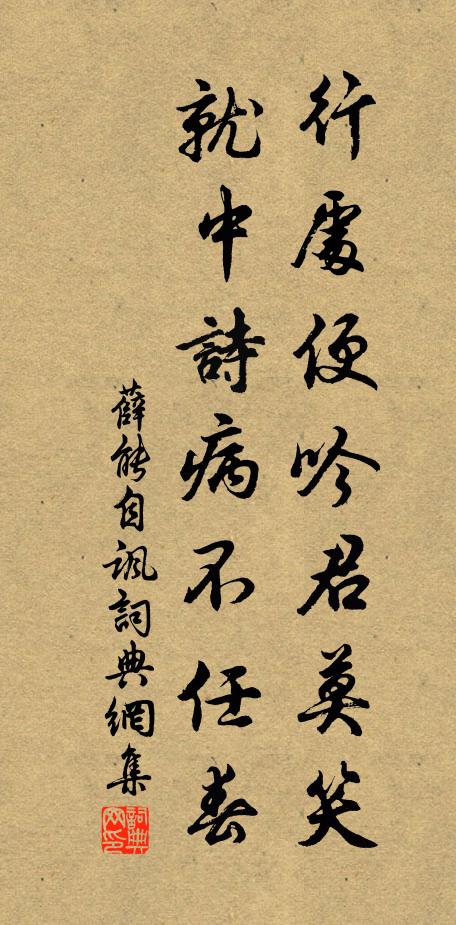 行處便吟君莫笑
就中詩病不任春
薛能自諷詞典網集
詞典網印